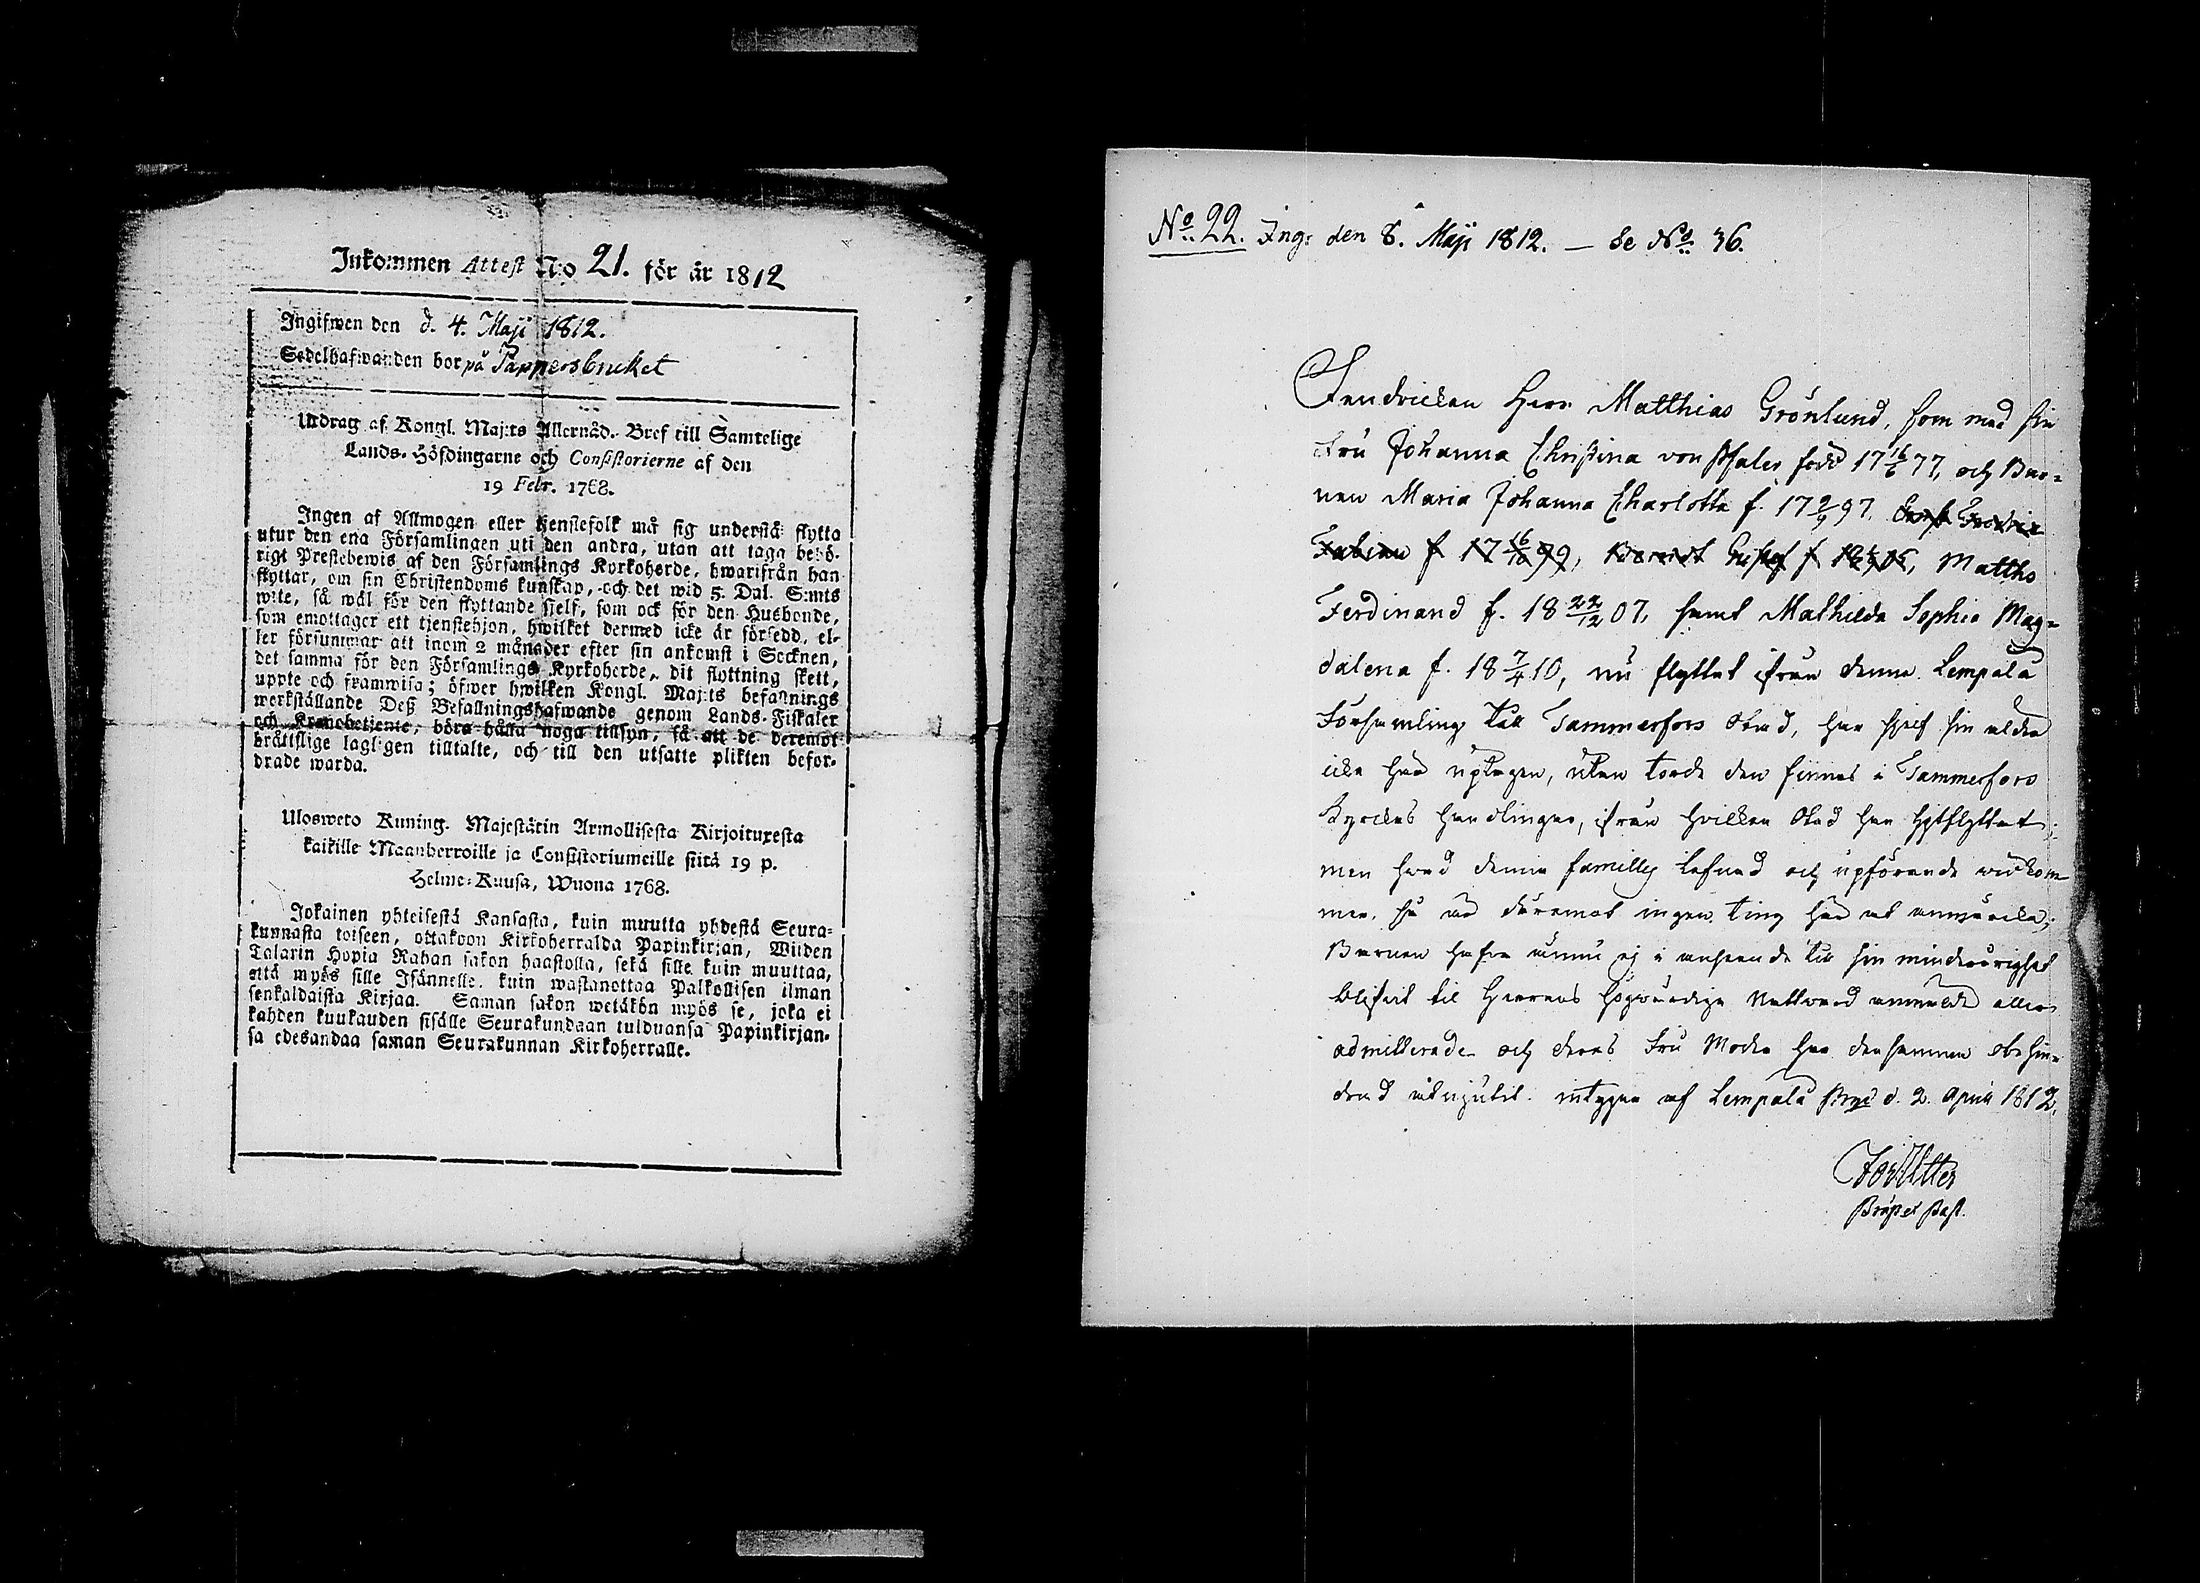 Inkommen Attest N:o 21. för år 1812
Ingifwen den d. 4. Maji 1812.
Sedelhafwanden bor på Pappersbruket
Utdrag af Kongl. Maj:ts Allernåd. Bref till Samtelige
Lands-Höfdingarne och Consistorierne af den
19 Febr. 1768.
Ingen af Allmogen eller tjenstefolk må sig understå flytta
utur den ena Församlingen uti den andra, utan att taga behö-
rigt Prestebewis af den Församlings Kyrkoherde, hwarifrån han
flyttar, om sin Christendoms kunskap, och det wid 5. Dal. S:mts
wite, så wäl för den flyttande sjelf, som ock för den Husbonde,
som emottager ett tjenstehjon, hwilket dermed icke är försedd, el-
ler försummar att inom 2 månader efter sin ankomst i Socknen,
det samma för den Församlings Kyrkoherde, dit flyttning skett,
uppte och framwisa; öfwer hwilken Kongl. Maj:ts befallnings
werkställande Deß Befallningshafwande genom Lands-Fiskaler
och Kronobetjente, böra hålla noga tillsyn, så att de deremot
bråttslige lagligen tilltalte, och till den utsatte plikten befor-
drade warda.
Ulosweto Kuning. Majestätin Armollisesta Kirjoituxesta
kaikille Maanherroille ja Consistoriumeille siitä 19 p.
Helme-Kuusa, Wuona 1768.
Jokainen yhteisestä Kansasta, kuin muutta yhdestä Seura-
kunnasta toiseen, ottakoon Kirkoherralda Papinkirjan, Wiiden
Talarin Hopia Rahan sakon haastolla, sekä sille kuin muuttaa,
että myös sille Isännelle, kuin wastanottaa Palkollisen ilman
senkaldaista Kirjaa. Saman sakon wetäkön myös se, joka ei
kahden kuukauden sisälle Seurakundaan tulduansa Papinkirjan-
sa edesandaa saman Seurakunnan Kirkoherralle.
No 22. Ing: den 8. Maji 1812. — Se No 36.
Fendricken Herr Matthias Grönlund, som med sin
Fru Johanna Christina von Pfaler född 17 16/6 77, och Bar-
nen Maria Johanna Charlotta f. 17 2/9 97,
Fabian f 17 16/10 99, Berndt Gustaf f 18 05, Matths
Ferdinand f. 18 22/12 07, samt Mathilda Sophia Mag-
dalena f. 18 7/4 10, nu flyttat ifrån denna Lempälä
Församling till Tammerfors Stad, har sjelf sin ålder
icke här uptagen, utan torde den finnas i Tammerfors
Kyrckes Handlingar, ifrån hvilken Stad han hytflyttat;
men hvad denna familles lefnad och upförande widkom-
mer, så är däremot ingen ting här at anmärcka;
Barnen hafva ännu ej i anseende till sin minderårighet
blifvit til Herrans högwärdiga Nattward anmälde eller
admitterade och deras Fru Moder har densamma obehin-
drad åtnjutit. intygar af Lempälä Prgd d. 2. April 1812.
Utter
Præpst Past.